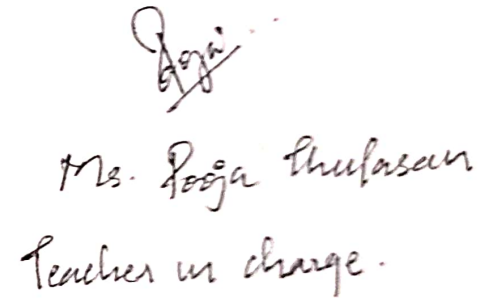 Pooja
Ms. Pooja Thulasan
Teacher in charge.